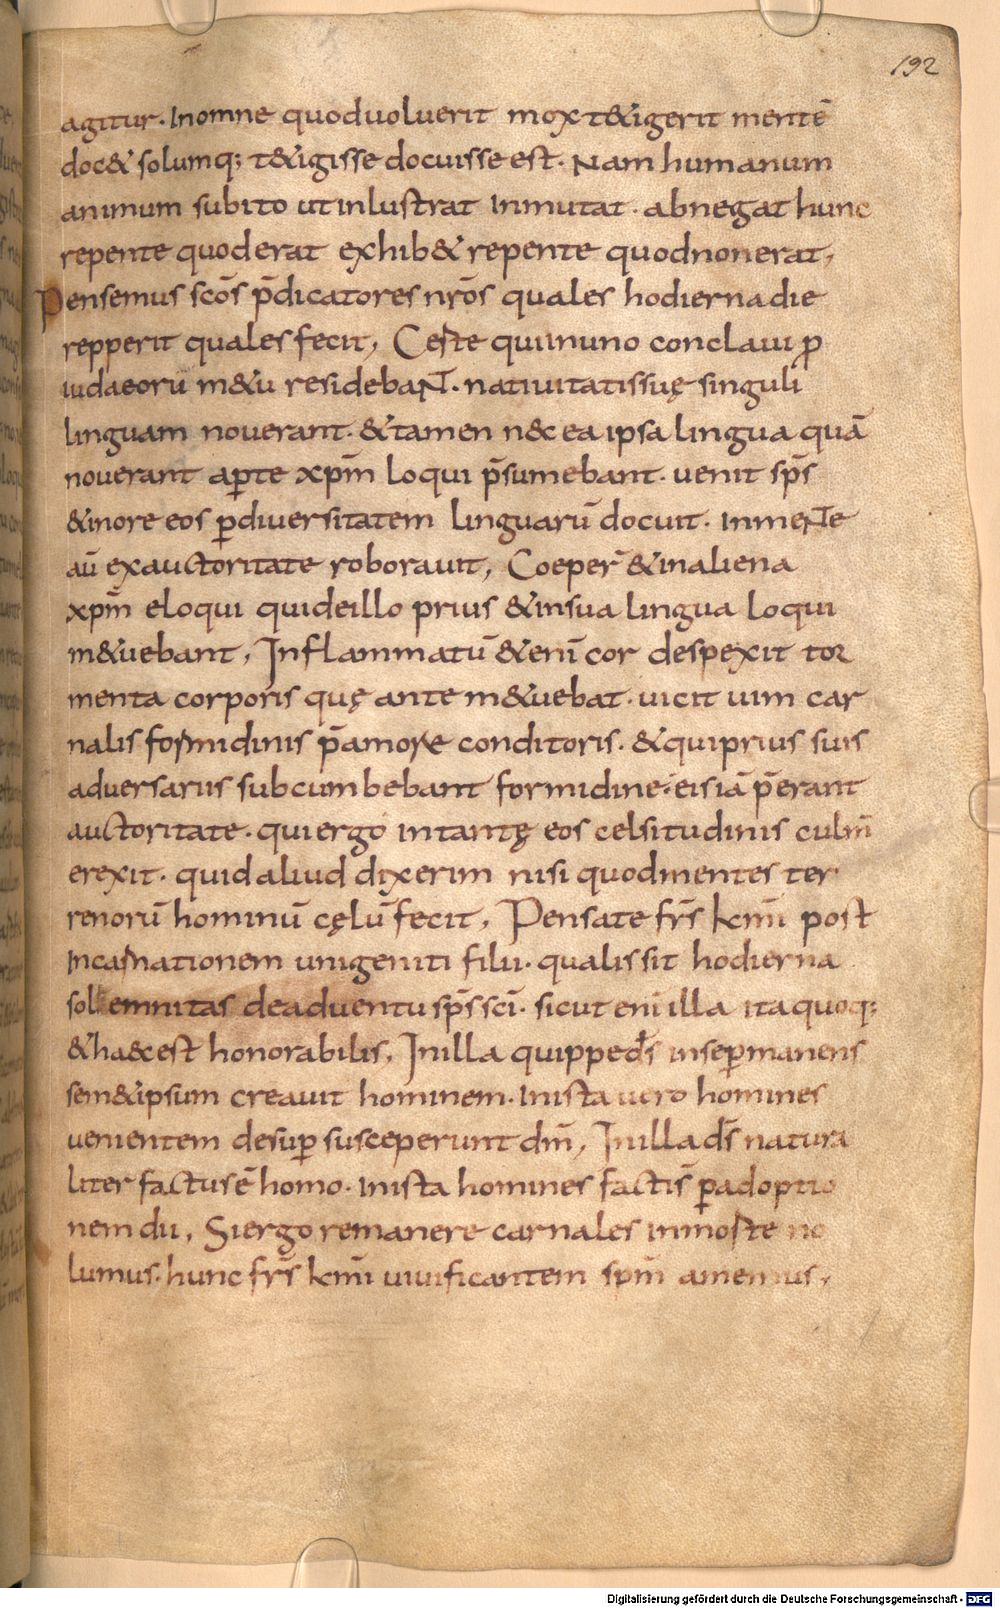 192
agitur. Inomne quoduoluerit mox t&igerit mentē
doc& solumq; t&igisse docuisse est. Nam humanum
animum subito utinlustrat inmutat. abnegat hunc
repente quoderat exhib& repente quodnonerat,
Pensemus scōs p̄dicatores nrōs quales hodiernadie
repperit quales fecit, Ceste quiinuno conclaui ꝓ
iudaeorū m&u residebaNT. natiuitatissuę singuli
linguam nouerant. &tamen n&c ea ipsa lingua quā
nouerant aꝑte xp̄m loqui p̄sumebant. uenit sp̄s
&inore eos ꝑdiuersitatem linguarū docuit. inmeNTe
aū exauctoritate roborauit, Coeper̄ &inaliena
xp̄m eloqui quideillo prius &insua lingua loqui
m&uebant, Inflammatū &enī cor despexit tor
menta corporis quę ante m&uebat. uicit uim car
nalis formidinis p̄amore conditoris. &quiprius suis
aduersariis subcumbebant formidine. eis iā p̄erant
auctoritate. qui ergo intantę eos celsitudinis culm̄
erexit. quid aliud dixerim nisi quodmentes ter
renorū hominū cęlū fecit, Pensate frs̄ km̄i post
incarnationem unigeniti filii. qualis sit hodierna
sollemnitas deaduentu sp̄s scī. sicut enī illa ita quoq;
&ha&c est honorabilis, Inilla quippe ds̄ inseꝑmanens
sem&ipsum creauit hominem. inista uero homines
uenientem desuꝑ susceperunt dm̄, Inilla ds̄ natura
liter factus ē homo. inista homines factis̄ ꝑadoptio
nem dii, Siergo remanere carnales inmorte no
lumus. hunc frs̄ km̄i uiuificantem spm̄ amemus,
Digitalisierung gefördert durch die Deutsche Forschungsgemeinschaft - DFG